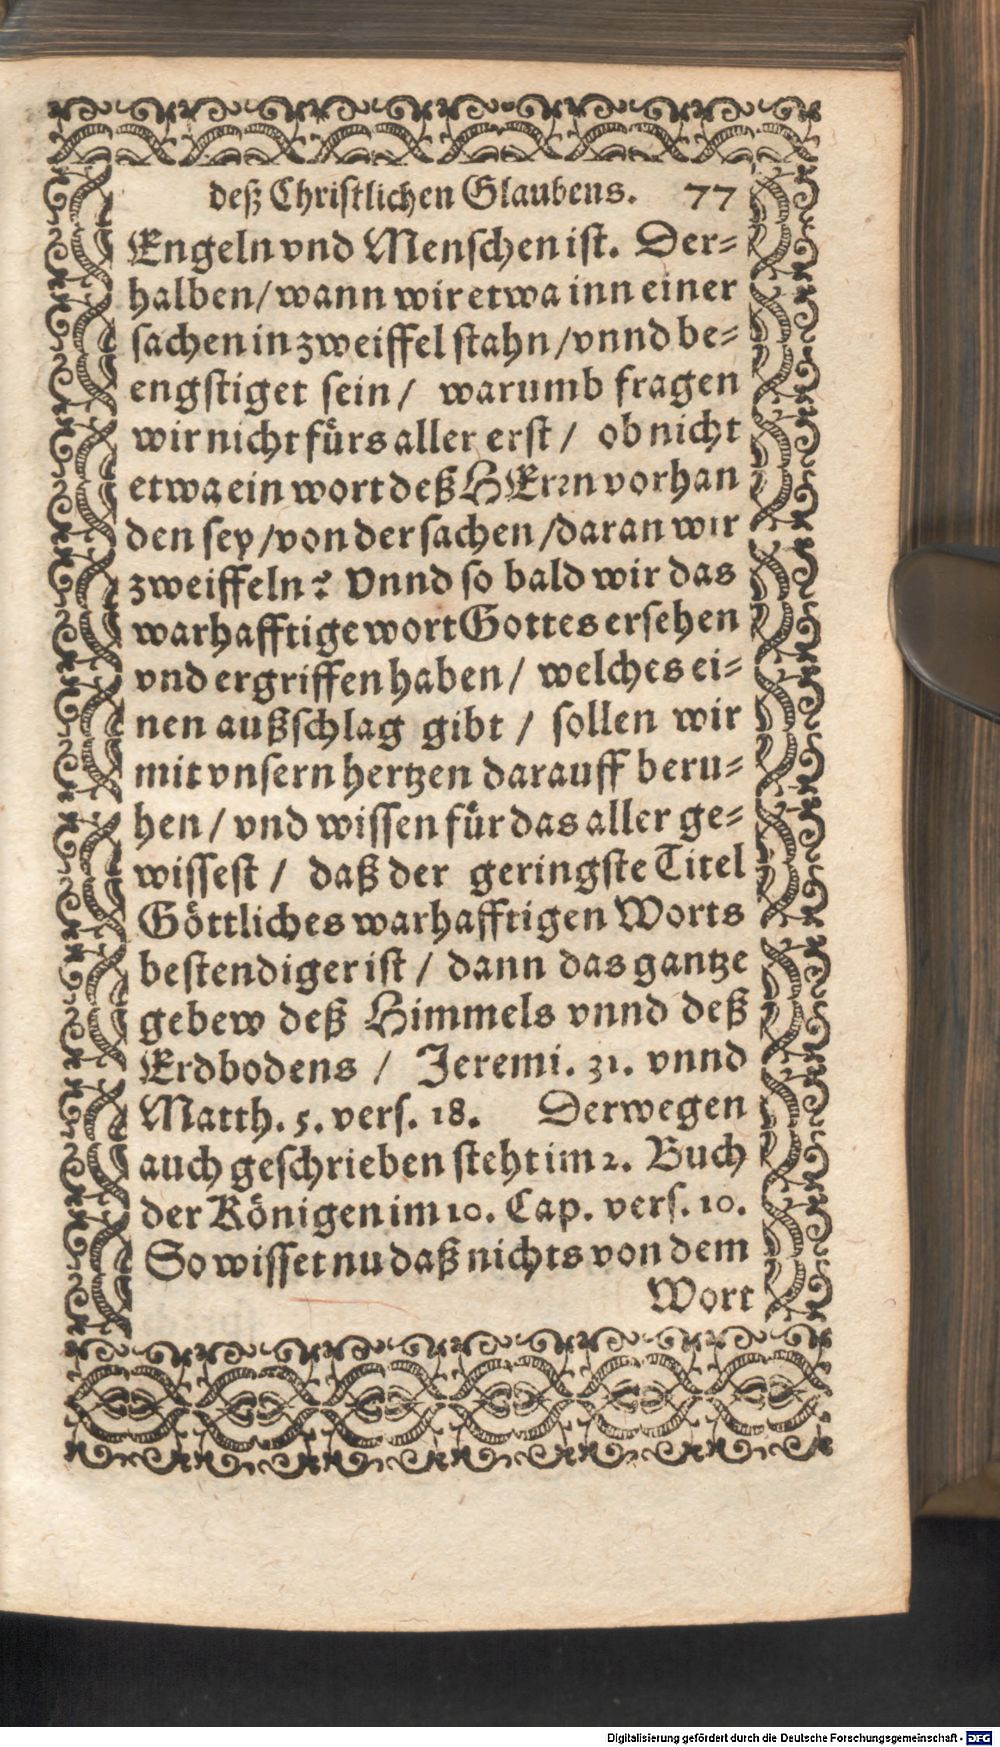 deß Christlichen Glaubens. 77
Engeln vnd Menschen ist. Der-
halben/ wann wir etwa inn einer
sachen in zweiffel stahn/ vnnd be-
engstiget sein/ warumb fragen
wir nicht fürs aller erst/ ob nicht
etwa ein wort deß HErrn vorhan
den sey/ von der sachen/ daran wir
zweiffeln? Vnnd so bald wir das
warhafftige wort Gottes ersehen
vnd ergriffen haben/ welches ei-
nen außschlag gibt/ sollen wir
mit vnsern hertzen darauff beru-
hen/ vnd wissen für das aller ge-
wissest/ daß der geringste Titel
Göttliches warhafftigen Worts
bestendiger ist/ dann das gantze
gebew deß Himmels vnnd deß
Erdbodens/ Jeremi. 31. vnnd
Matth. 5. vers. 18. Derwegen
auch geschrieben steht im 2. Buch
der Königen im 10. Cap. vers. 10.
So wisset nu daß nichts von dem
Wort
Digitalisierung gefördert durch die Deutsche Forschungsgemeinschaft - DFG